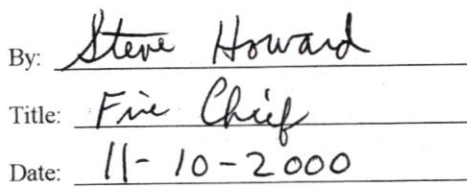 By: Steve Howard
Title: Fire Chief
Date: 11-10-2000